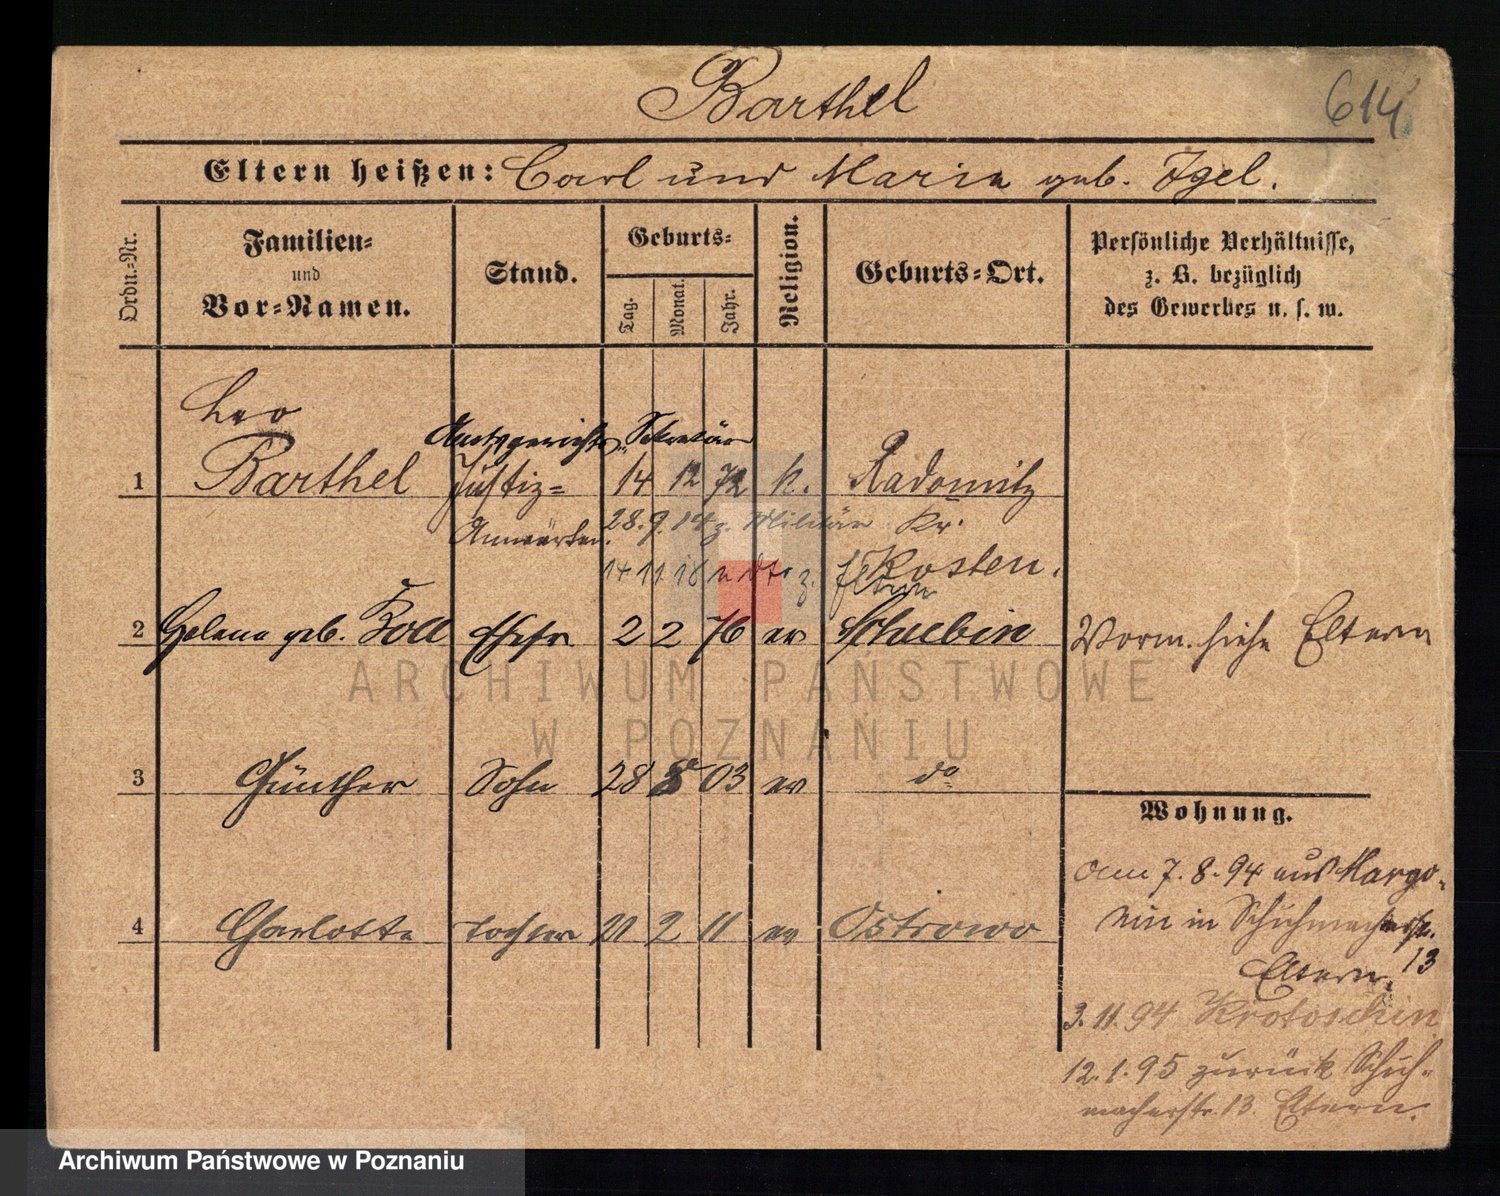 Barthel
614
Eltern heißen: Carl und Marie geb. Igel.
Ordn.-Nr.
Familien-
und
Vor-Namen.
Stand.
Geburts-
Tag.
Monat.
Jahr.
Religion.
Geburts-Ort.
Persönliche Verhältnisse,
z. B. bezüglich
des Gewerbes u. s. w.
Leo
Amtsgerichts-Sekretär
1 Barthel Justiz- 14 12 72 k. Radomitz
Anwärter. 28.9.14 z. Militär Kr.
14 11 16 z. Kosten.
2 Helena geb. Boll Ehefr 2 2 76 ev Schubin Vorm. siehe Eltern
3 Günther Sohn 28 8 03 ev do
4 Charlotte Tochter 21 2 11 ev Ostrowo
Wohnung.
am 7.8.94 aus Margo-
nin in Schuhmacherstr.
Eltern. 13
3.11.94 Krotoschin
12.1.95 zurück Schuh-
macherstr. 13 Eltern.
ARCHIWUM PAŃSTWOWE
W POZNANIU
Archiwum Państwowe w Poznaniu